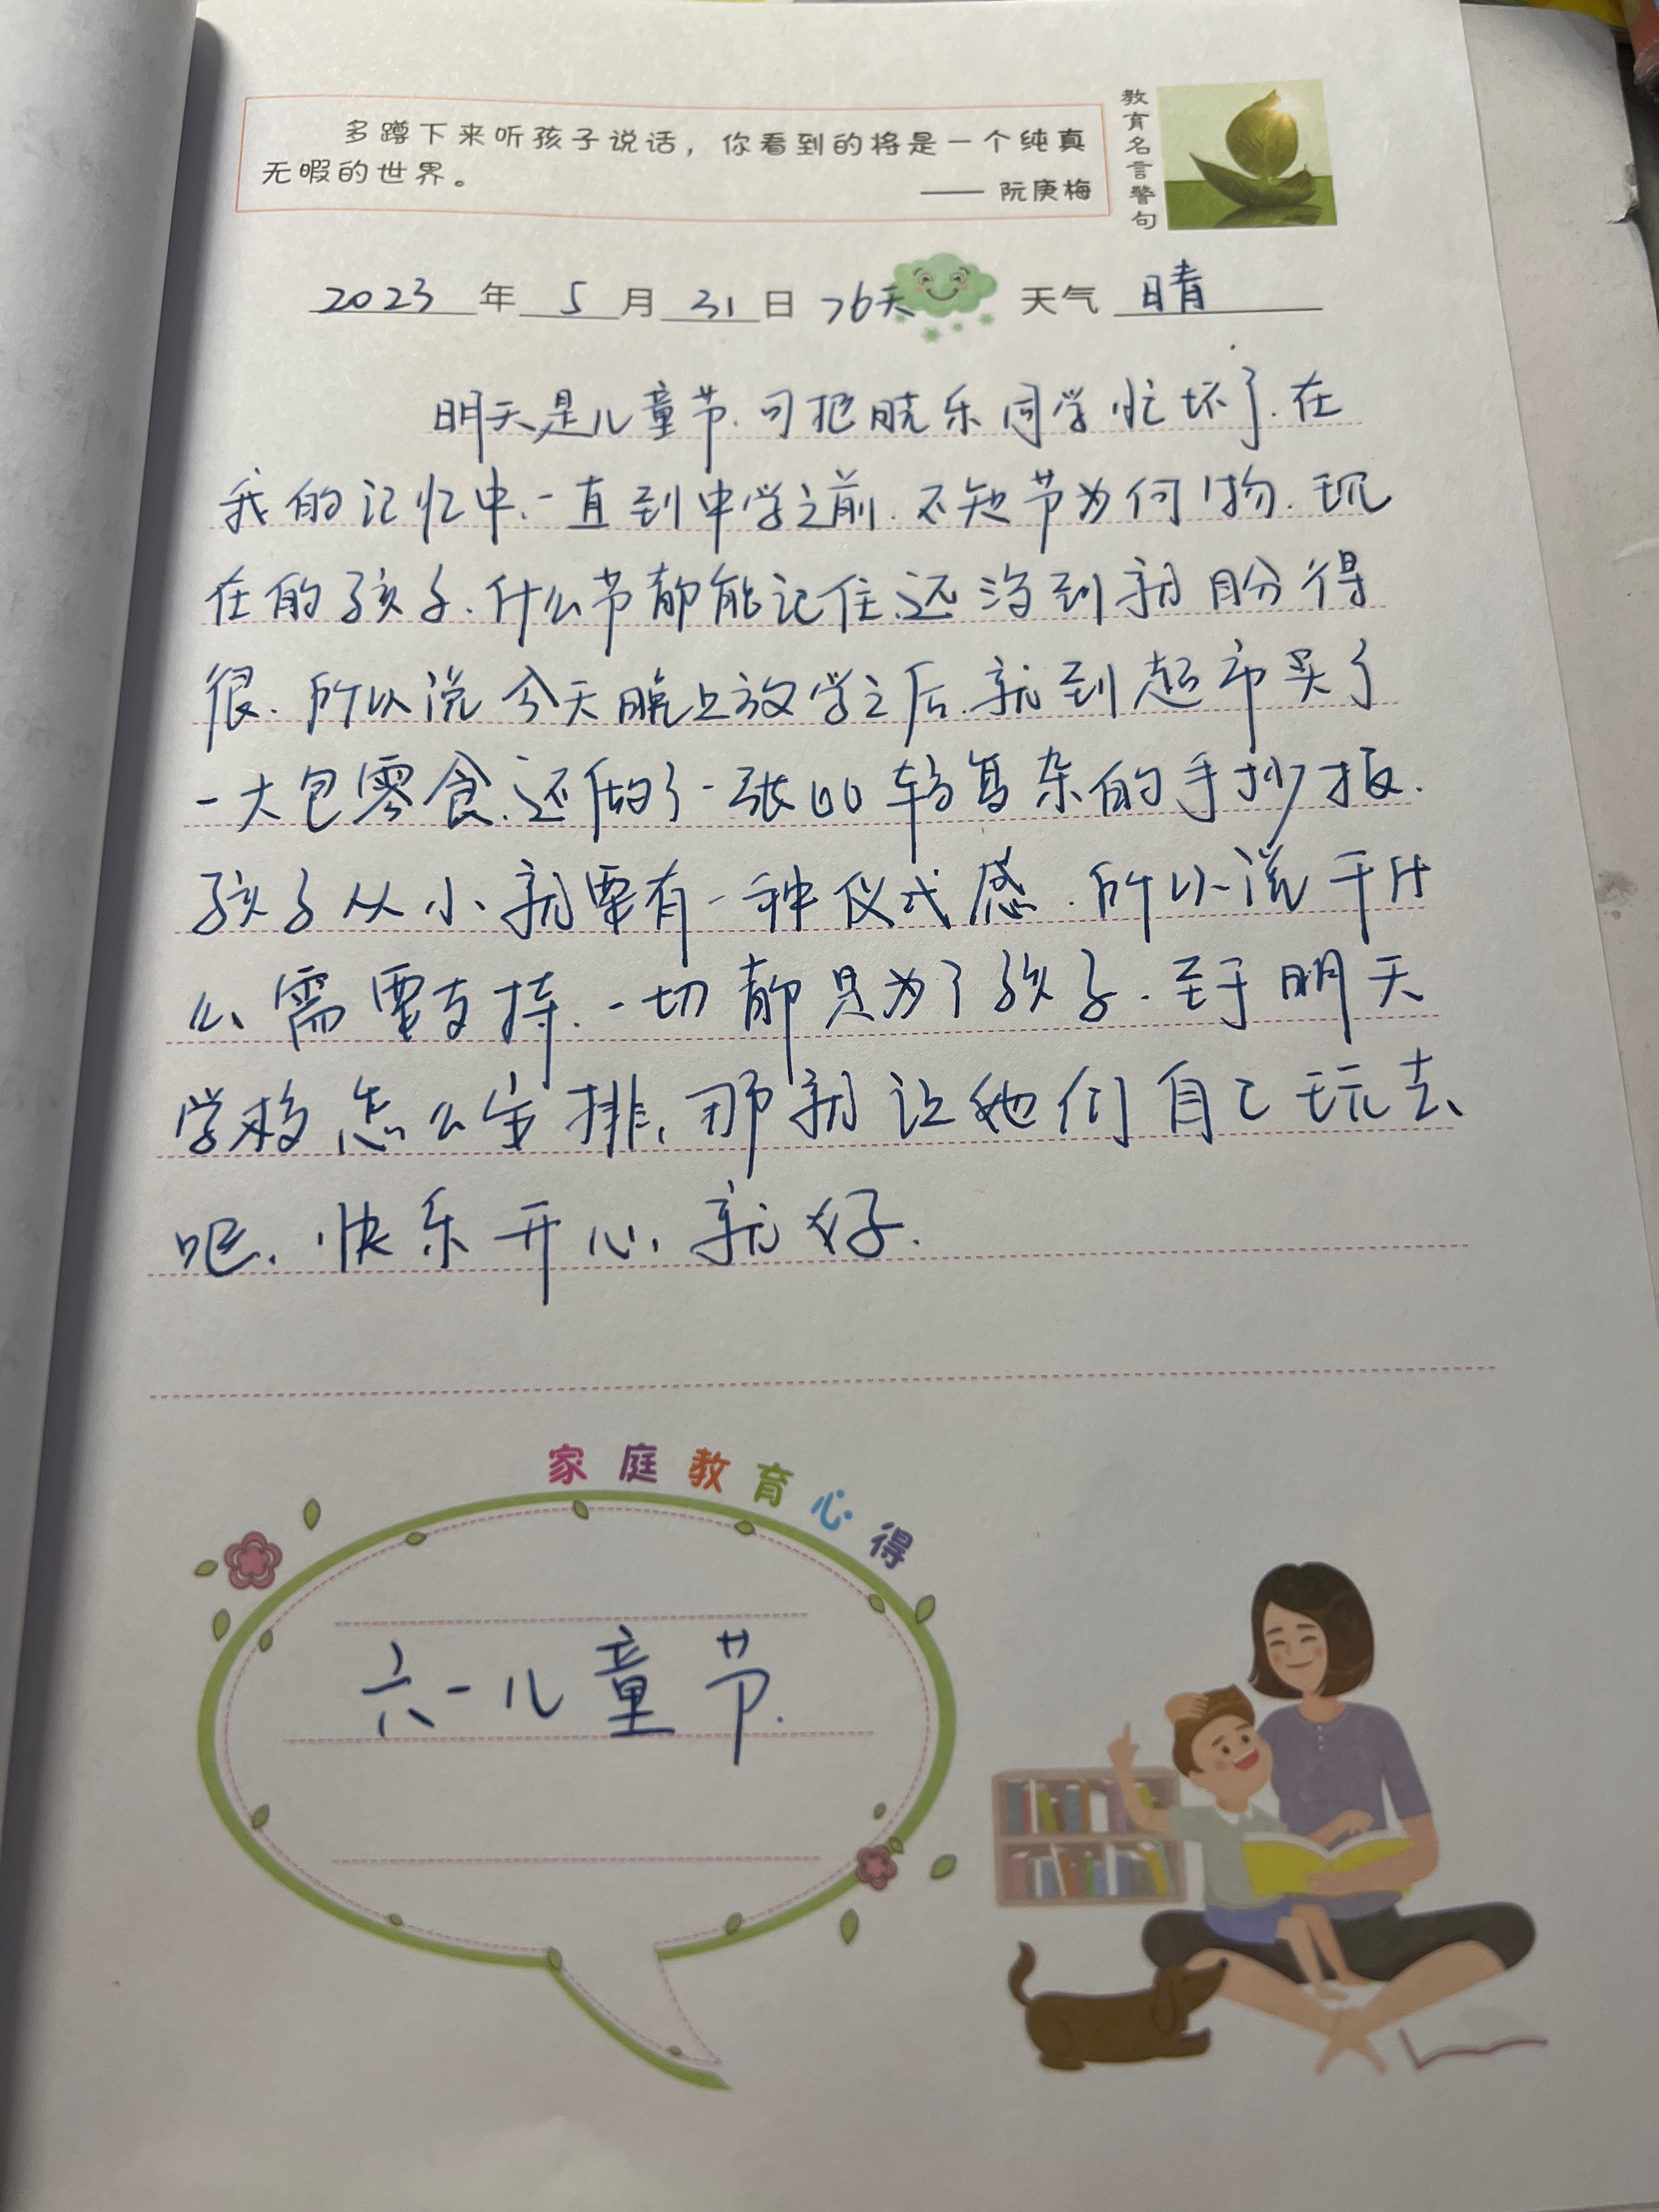 多蹲下来听孩子说话，你看到的将是一个纯真
无暇的世界。
—— 阮庚梅
教育名言警句
2023 年 5 月 31 日 76天 天气 晴
明天是儿童节.可把晓乐同学忙坏了.在
我的记忆中.一直到中学之前.不知节为何物.现
在的孩子.什么节都能记住.还没到就盼得
很.所以说今天晚上放学之后.就到超市买了
一大包零食.还做了一张比较复杂的手抄报.
孩子从小就要有一种仪式感.所以说干什
么需要支持.一切都是为了孩子.至于明天
学校怎么安排.那就让他们自己玩去
吧.快乐开心就好.
家庭教育心得
六一儿童节.